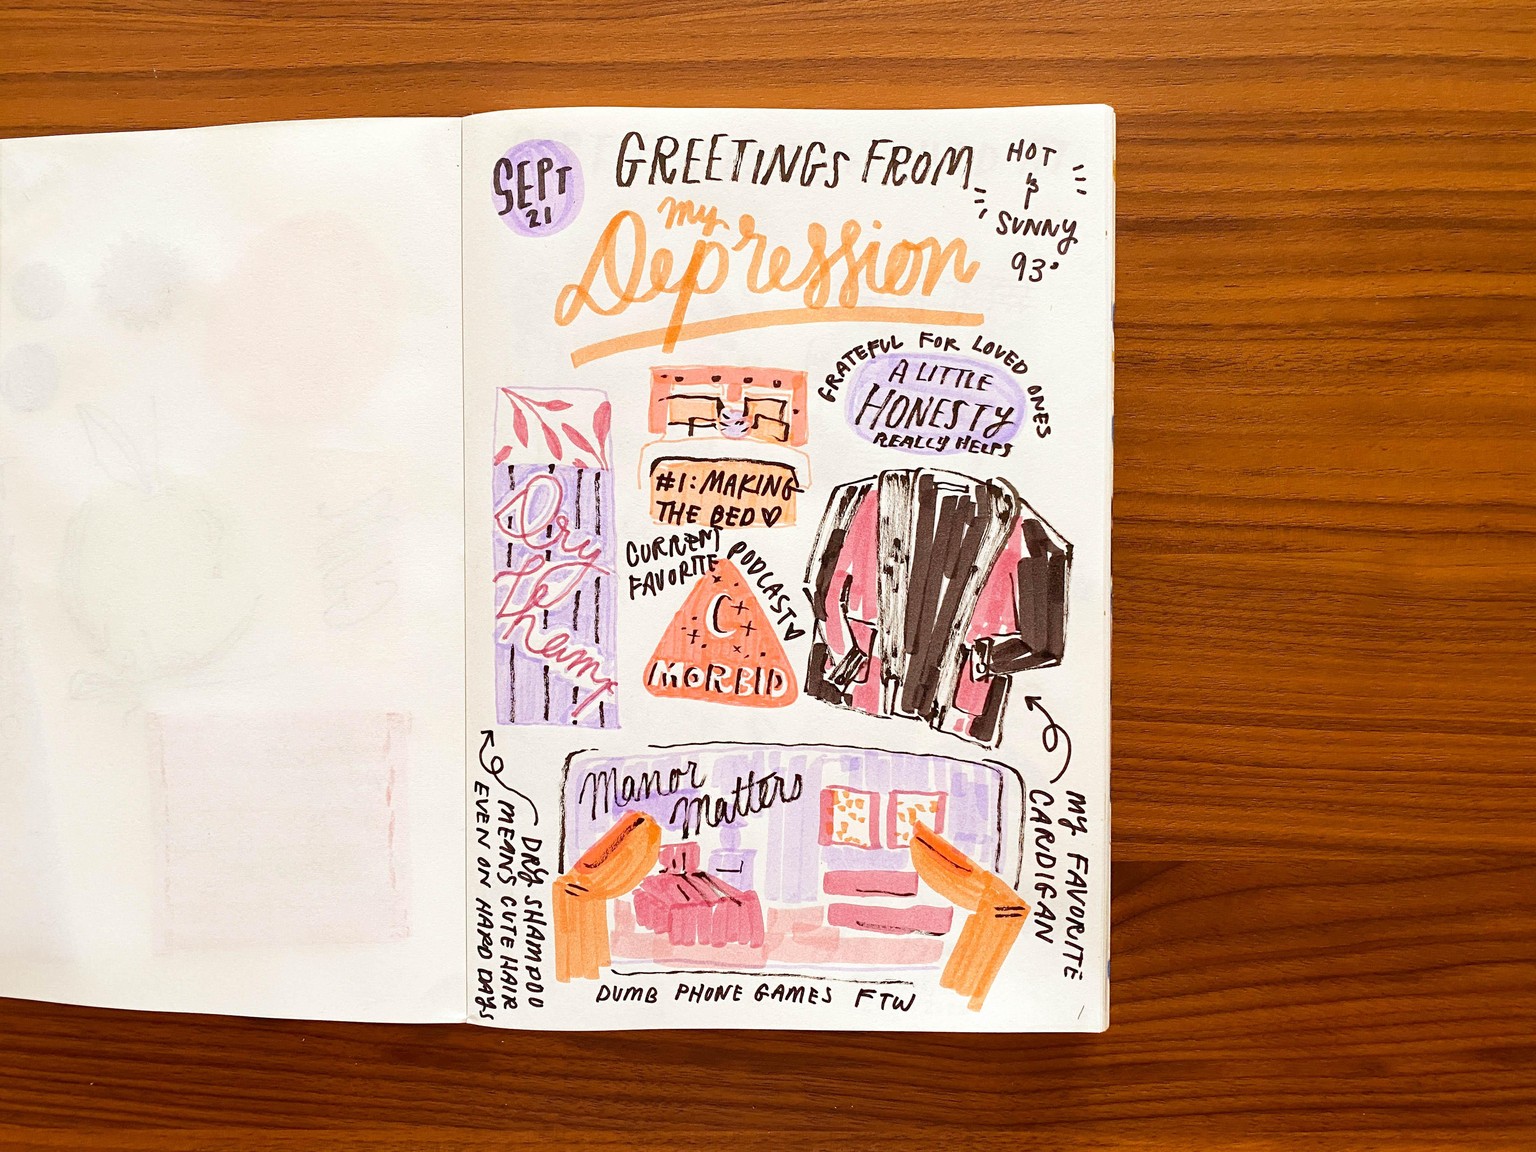 SEPT
21
GREETINGS FROM
my
Depression
HOT
&
SUNNY
93°
GRATEFUL FOR LOVED ONES
A LITTLE
HONESTY
REALLY HELPS
#1: MAKING
THE BED♡
Dry
Sham
CURRENT
FAVORITE PODCAST♡
MORBID
DRY SHAMPOO
MEANS CUTE HAIR
EVEN ON HARD DAYS
MY FAVORITE
CARDIGAN
Manor
Matters
DUMB PHONE GAMES FTW